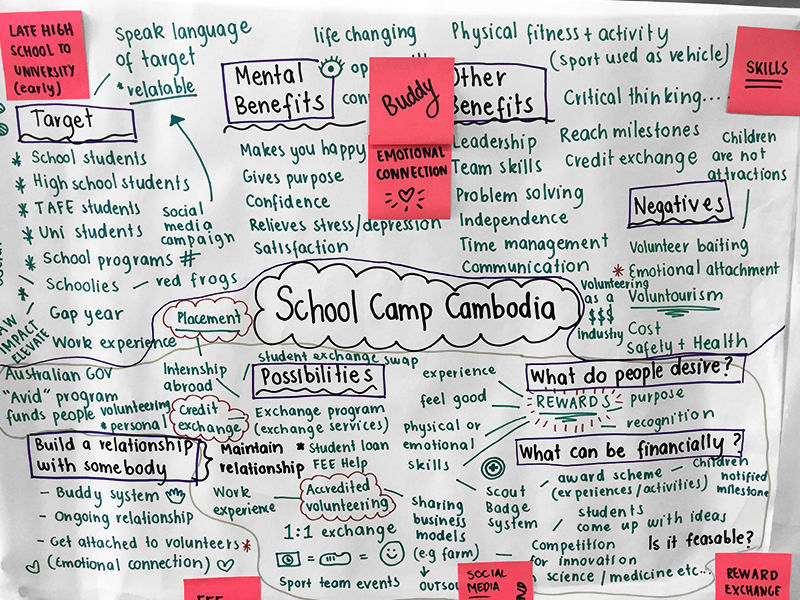 LATE HIGH
SCHOOL TO
UNIVERSITY
(early)
Speak language
of target
*relatable
Target
* School students
* High school students
* TAFE students
* Uni students
* School programs #
* Schoolies — red frogs
Gap year
Work experience
IMPACT
ELEVATE
Social
media
campaign
life changing
Mental
Benefits
Makes you happy
Gives purpose
Confidence
Relieves stress/depression
Satisfaction
Buddy
EMOTIONAL
CONNECTION
Physical fitness + activity
(sport used as vehicle)
Other
Benefits
Leadership
Team skills
Problem solving
Independence
Time management
Communication
Critical thinking...
Reach milestones
Credit exchange
SKILLS
Children
are not
attractions
Negatives
Volunteer baiting
* Emotional attachment
Voluntourism
Cost
Safety + Health
Volunteering
as a
$$$
industry
School Camp Cambodia
Placement
Internship
abroad
Credit
exchange
Australian GOV
"Avid" program
funds people
volunteering
* personal
Build a relationship
with somebody
- Buddy system
- Ongoing relationship
- Get attached to volunteers *
(Emotional connection)
student exchange swap
Possibilities
Exchange program
(exchange services)
Maintain
relationship
* Student loan
FEE Help
Work
experience
Accredited
volunteering
1:1 exchange
= =
Sport team events
What do people desire?
REWARDS
experience
feel good
physical or
emotional
skills
purpose
recognition
What can be financially?
award scheme
(experiences/activities)
Children
notified
milestone
Scout
Badge
system
students
come up with ideas
Is it feasable?
Sharing
business
models
(eg farm)
Competition
for innovation
science / medicine etc...
SOCIAL
MEDIA
REWARD
EXCHANGE